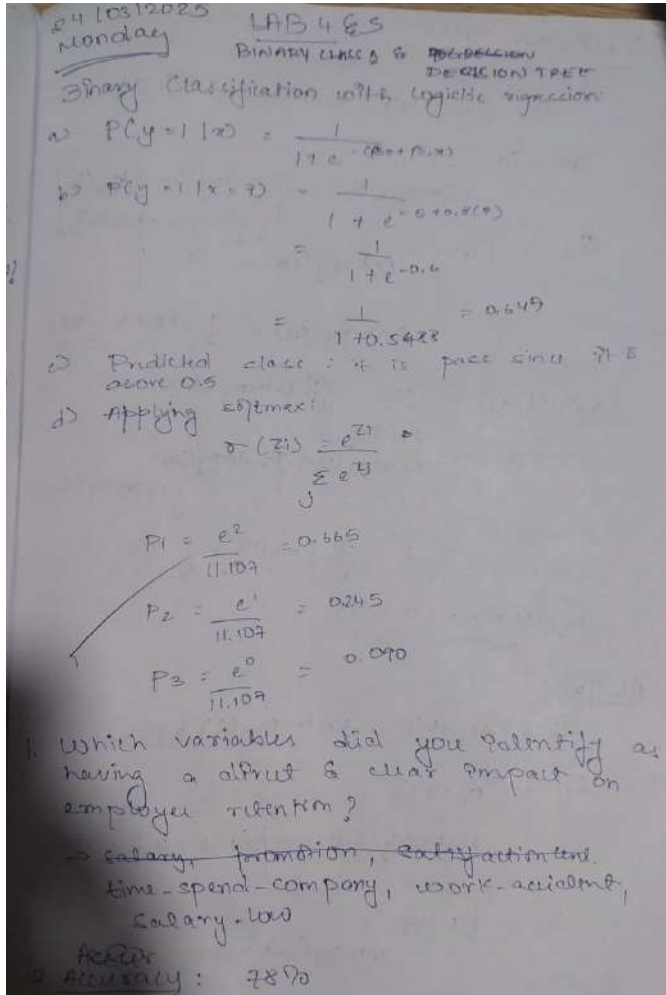 24/03/2025
Monday
LAB 4 & 5
BINARY CLASS & REGRESSION
DECISION TREE
Binary Classification with logistic regression:
a) P(y=1|x) = 1 / 1+e^-(β0+β1x)
b) P(y=1|x=7) = 1 / 1+e^-5+0.8(7)
= 1 / 1+e^-0.6
= 1 / 1+0.5488 = 0.645
c) Predicted class : it is pass since it is
above 0.5
d) Applying softmax:
σ(zi) = e^zi / Σj e^zj
P1 = e^2 / 11.107 = 0.665
P2 = e^1 / 11.107 = 0.245
P3 = e^0 / 11.107 = 0.090
1. Which variables did you identify as
having a direct & clear impact on
employee retention?
→ salary, promotion, satisfaction
time-spend-company, work-accident,
salary-low
2. Accuracy : 78%